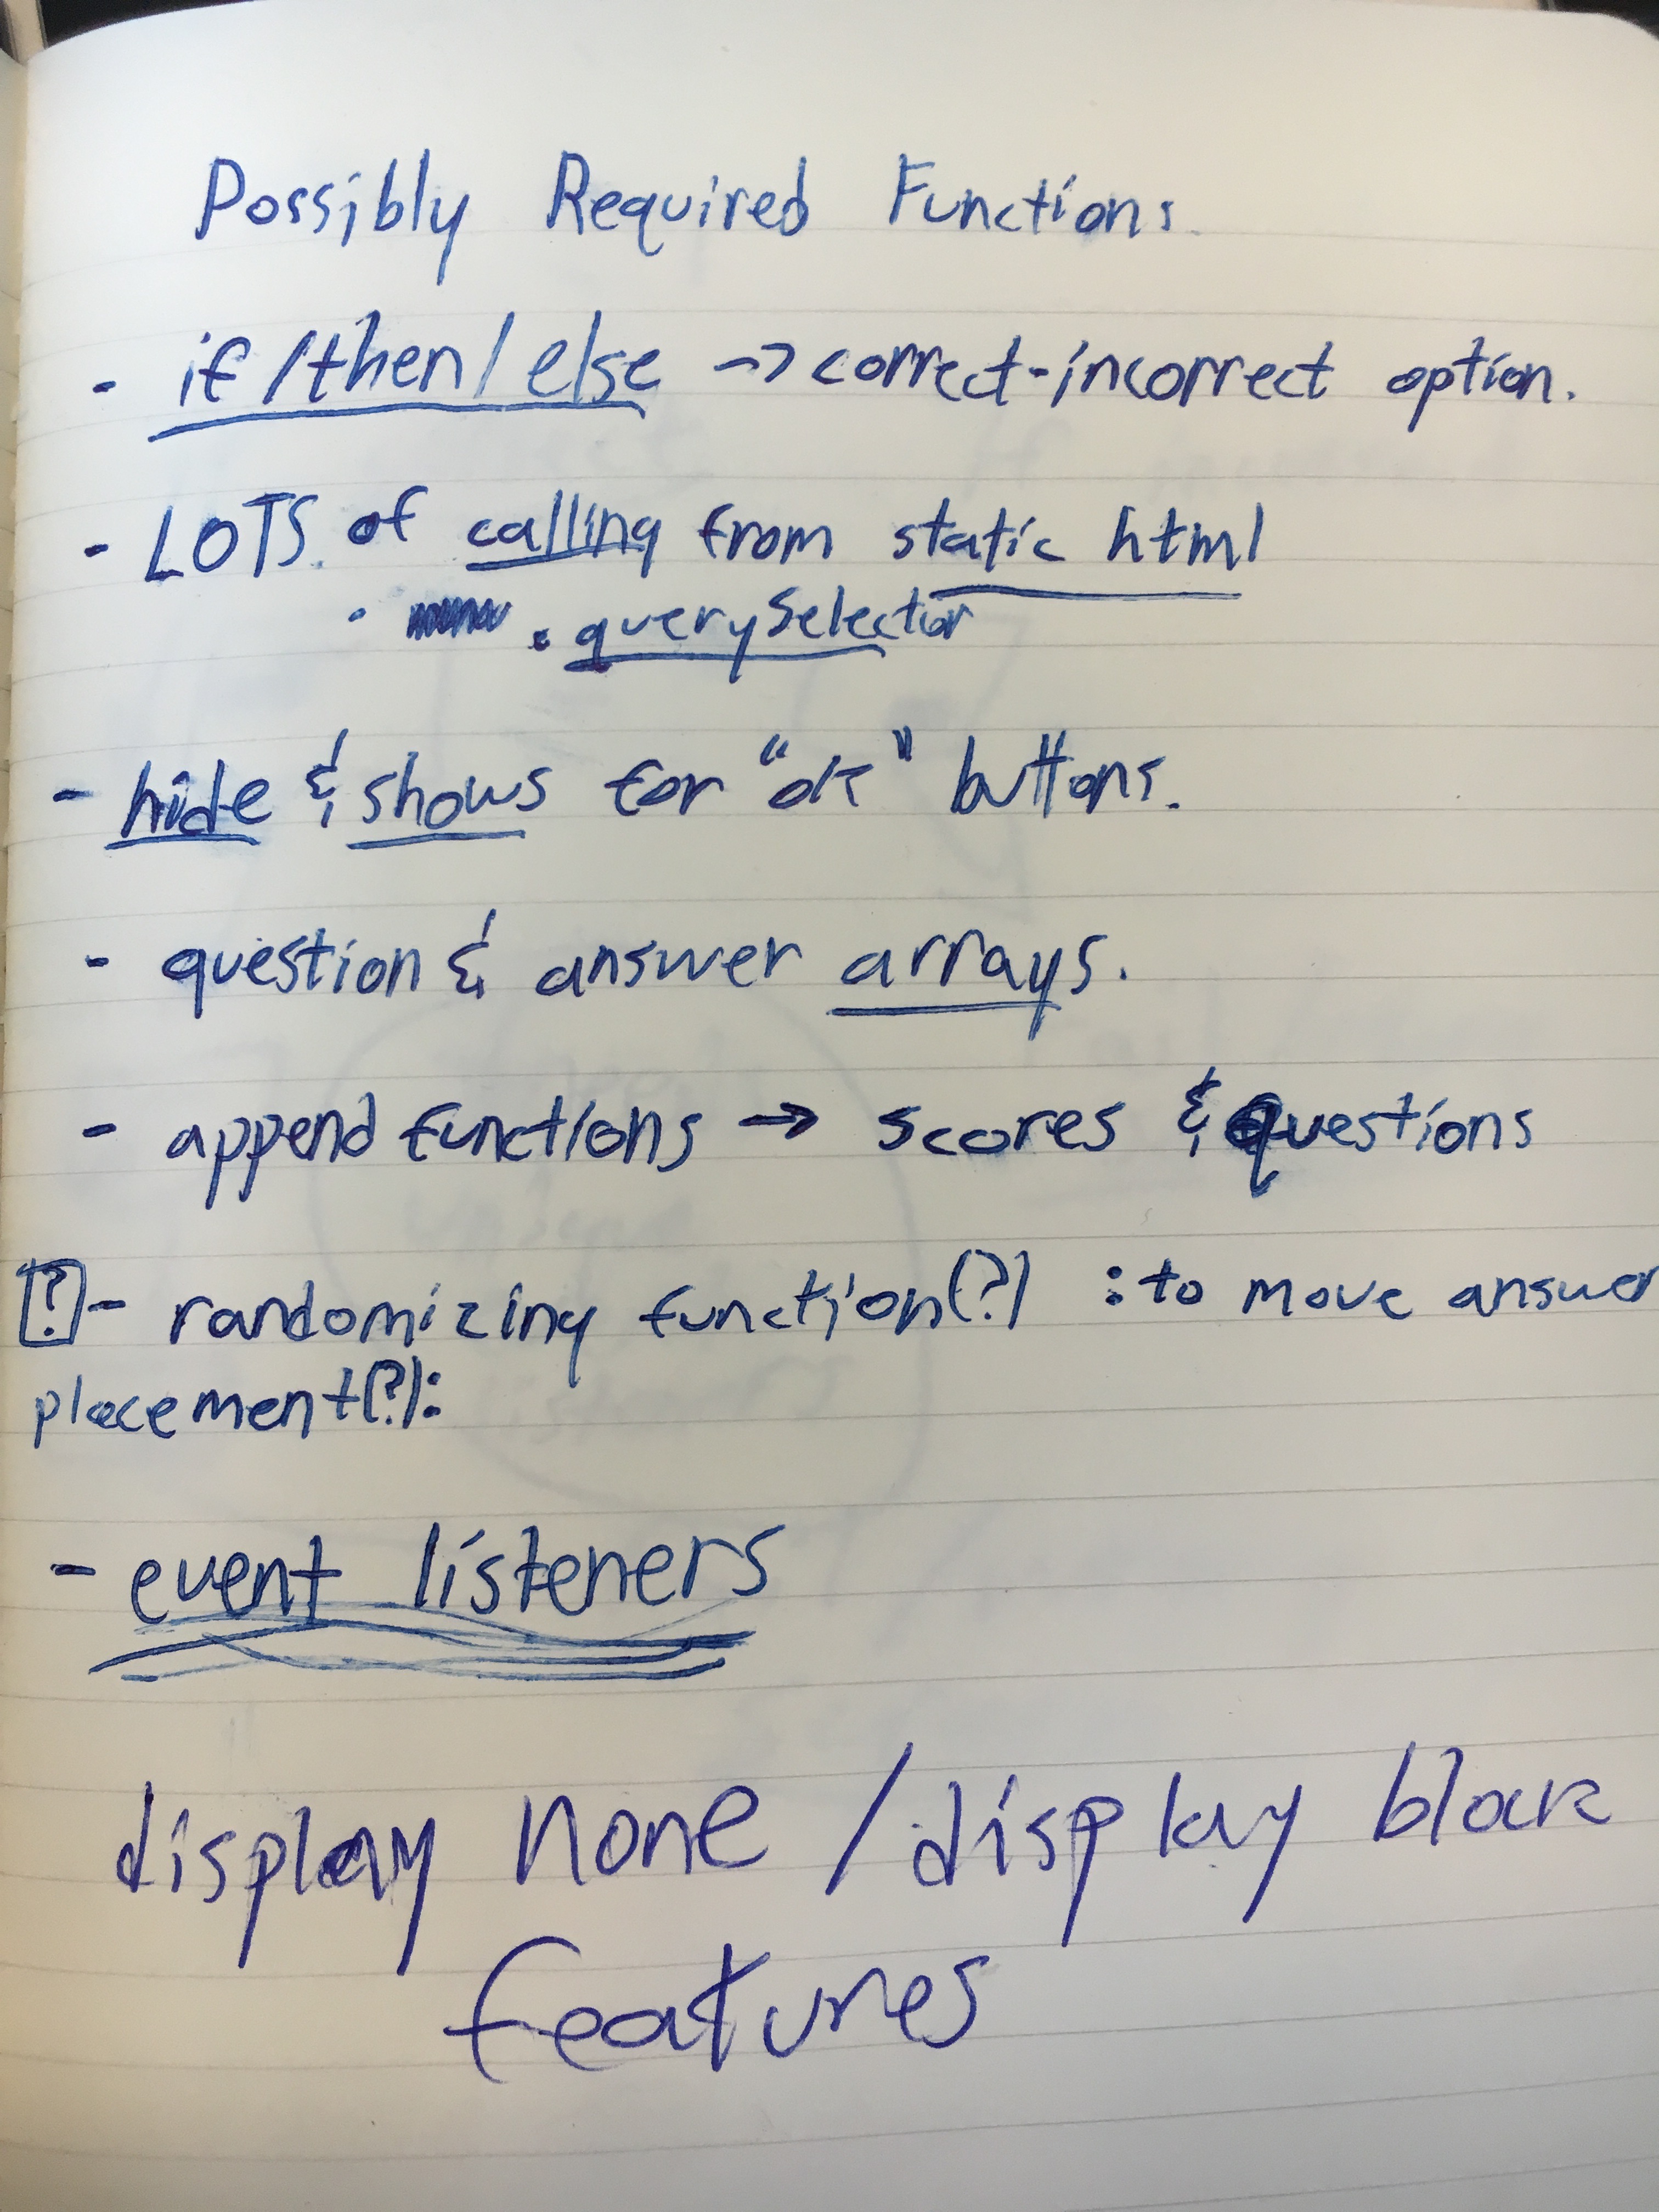 Possibly Required Functions.
- if/then/else → correct-incorrect option.
- LOTS. of calling from static html
• .querySelector
- hide & shows for "ok" buttons.
- question & answer arrays.
- append functions → scores & questions
[?] - randomizing function(?) : to move answer
placement(?):
- event listeners
display none / display block
features